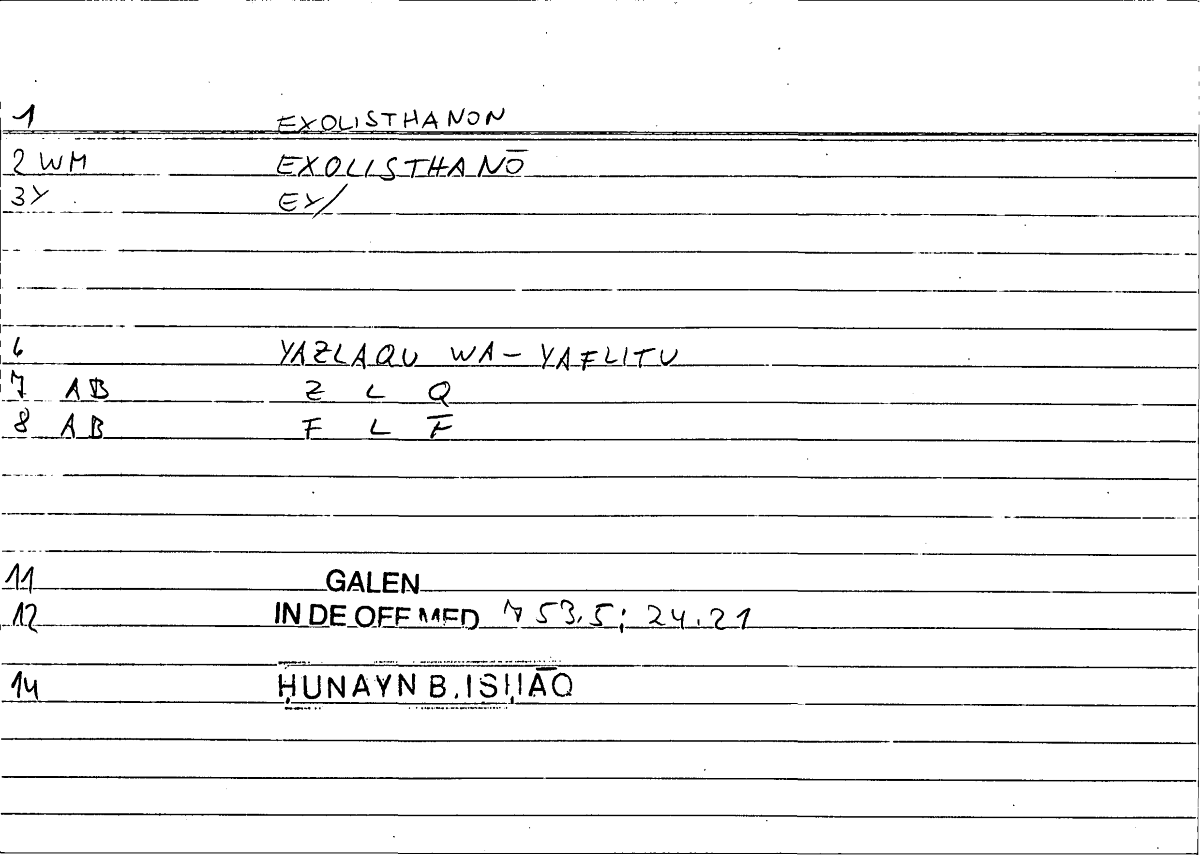 1 EXOLISTHANON
2 WM EXOLISTHANŌ
3Y EX/
6 YAZLAQU WA-YAFLITU
7 AB Z L Q
8 AB F L T
11 GALEN
12 IN DE OFF MED 753,5; 24.21
14 ḤUNAYN B. ISḤĀQ